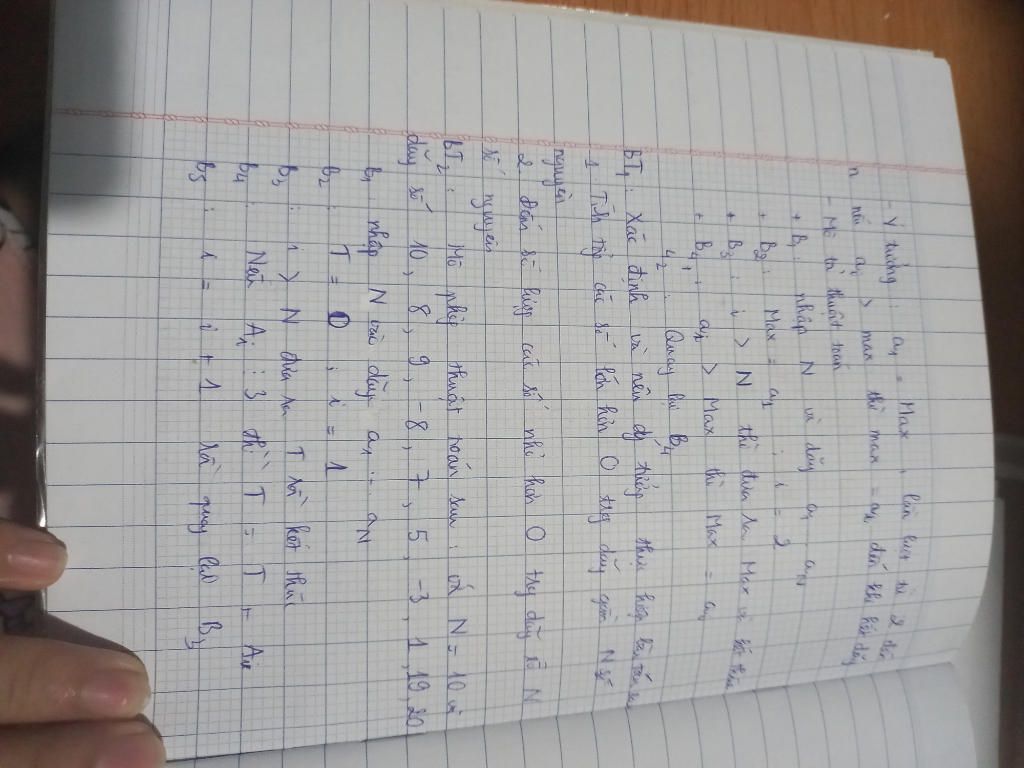 - Ý tưởng : a1 = Max , lần lượt từ 2 đến
n nếu ai > max thì max = ai đến khi hết dãy
- Mô tả thuật toán
+ B1 : nhập N và dãy a1 aN
+ B2 : Max = a1 ; i = 2
+ B3 : i > N thì đưa ra Max và kết thúc
+ B4 : ai > Max thì Max = ai
4.2 : Quay lại B4
BT1 : Xác định và nêu dãy thực hiện bài toán sau
1. Tính tổng các số lớn hơn 0 trg dãy gồm N số
nguyên
2. Đếm số lượng các số nhỏ hơn 0 trg dãy số N
số nguyên
BT2 : Mô phỏng thuật toán sau : với N = 10 và
dãy số 10, 8, 9, -8, 7, 5, -3, 1, 19, 20
B1 nhập N và dãy a1 ... aN
B2 : T = 0 ; i = 1
B3 : i > N đưa ra T rồi kết thúc
B4 : Nếu Ai ⋮ 3 thì T = T + Ai
B5 : i = i + 1 rồi quay lại B3